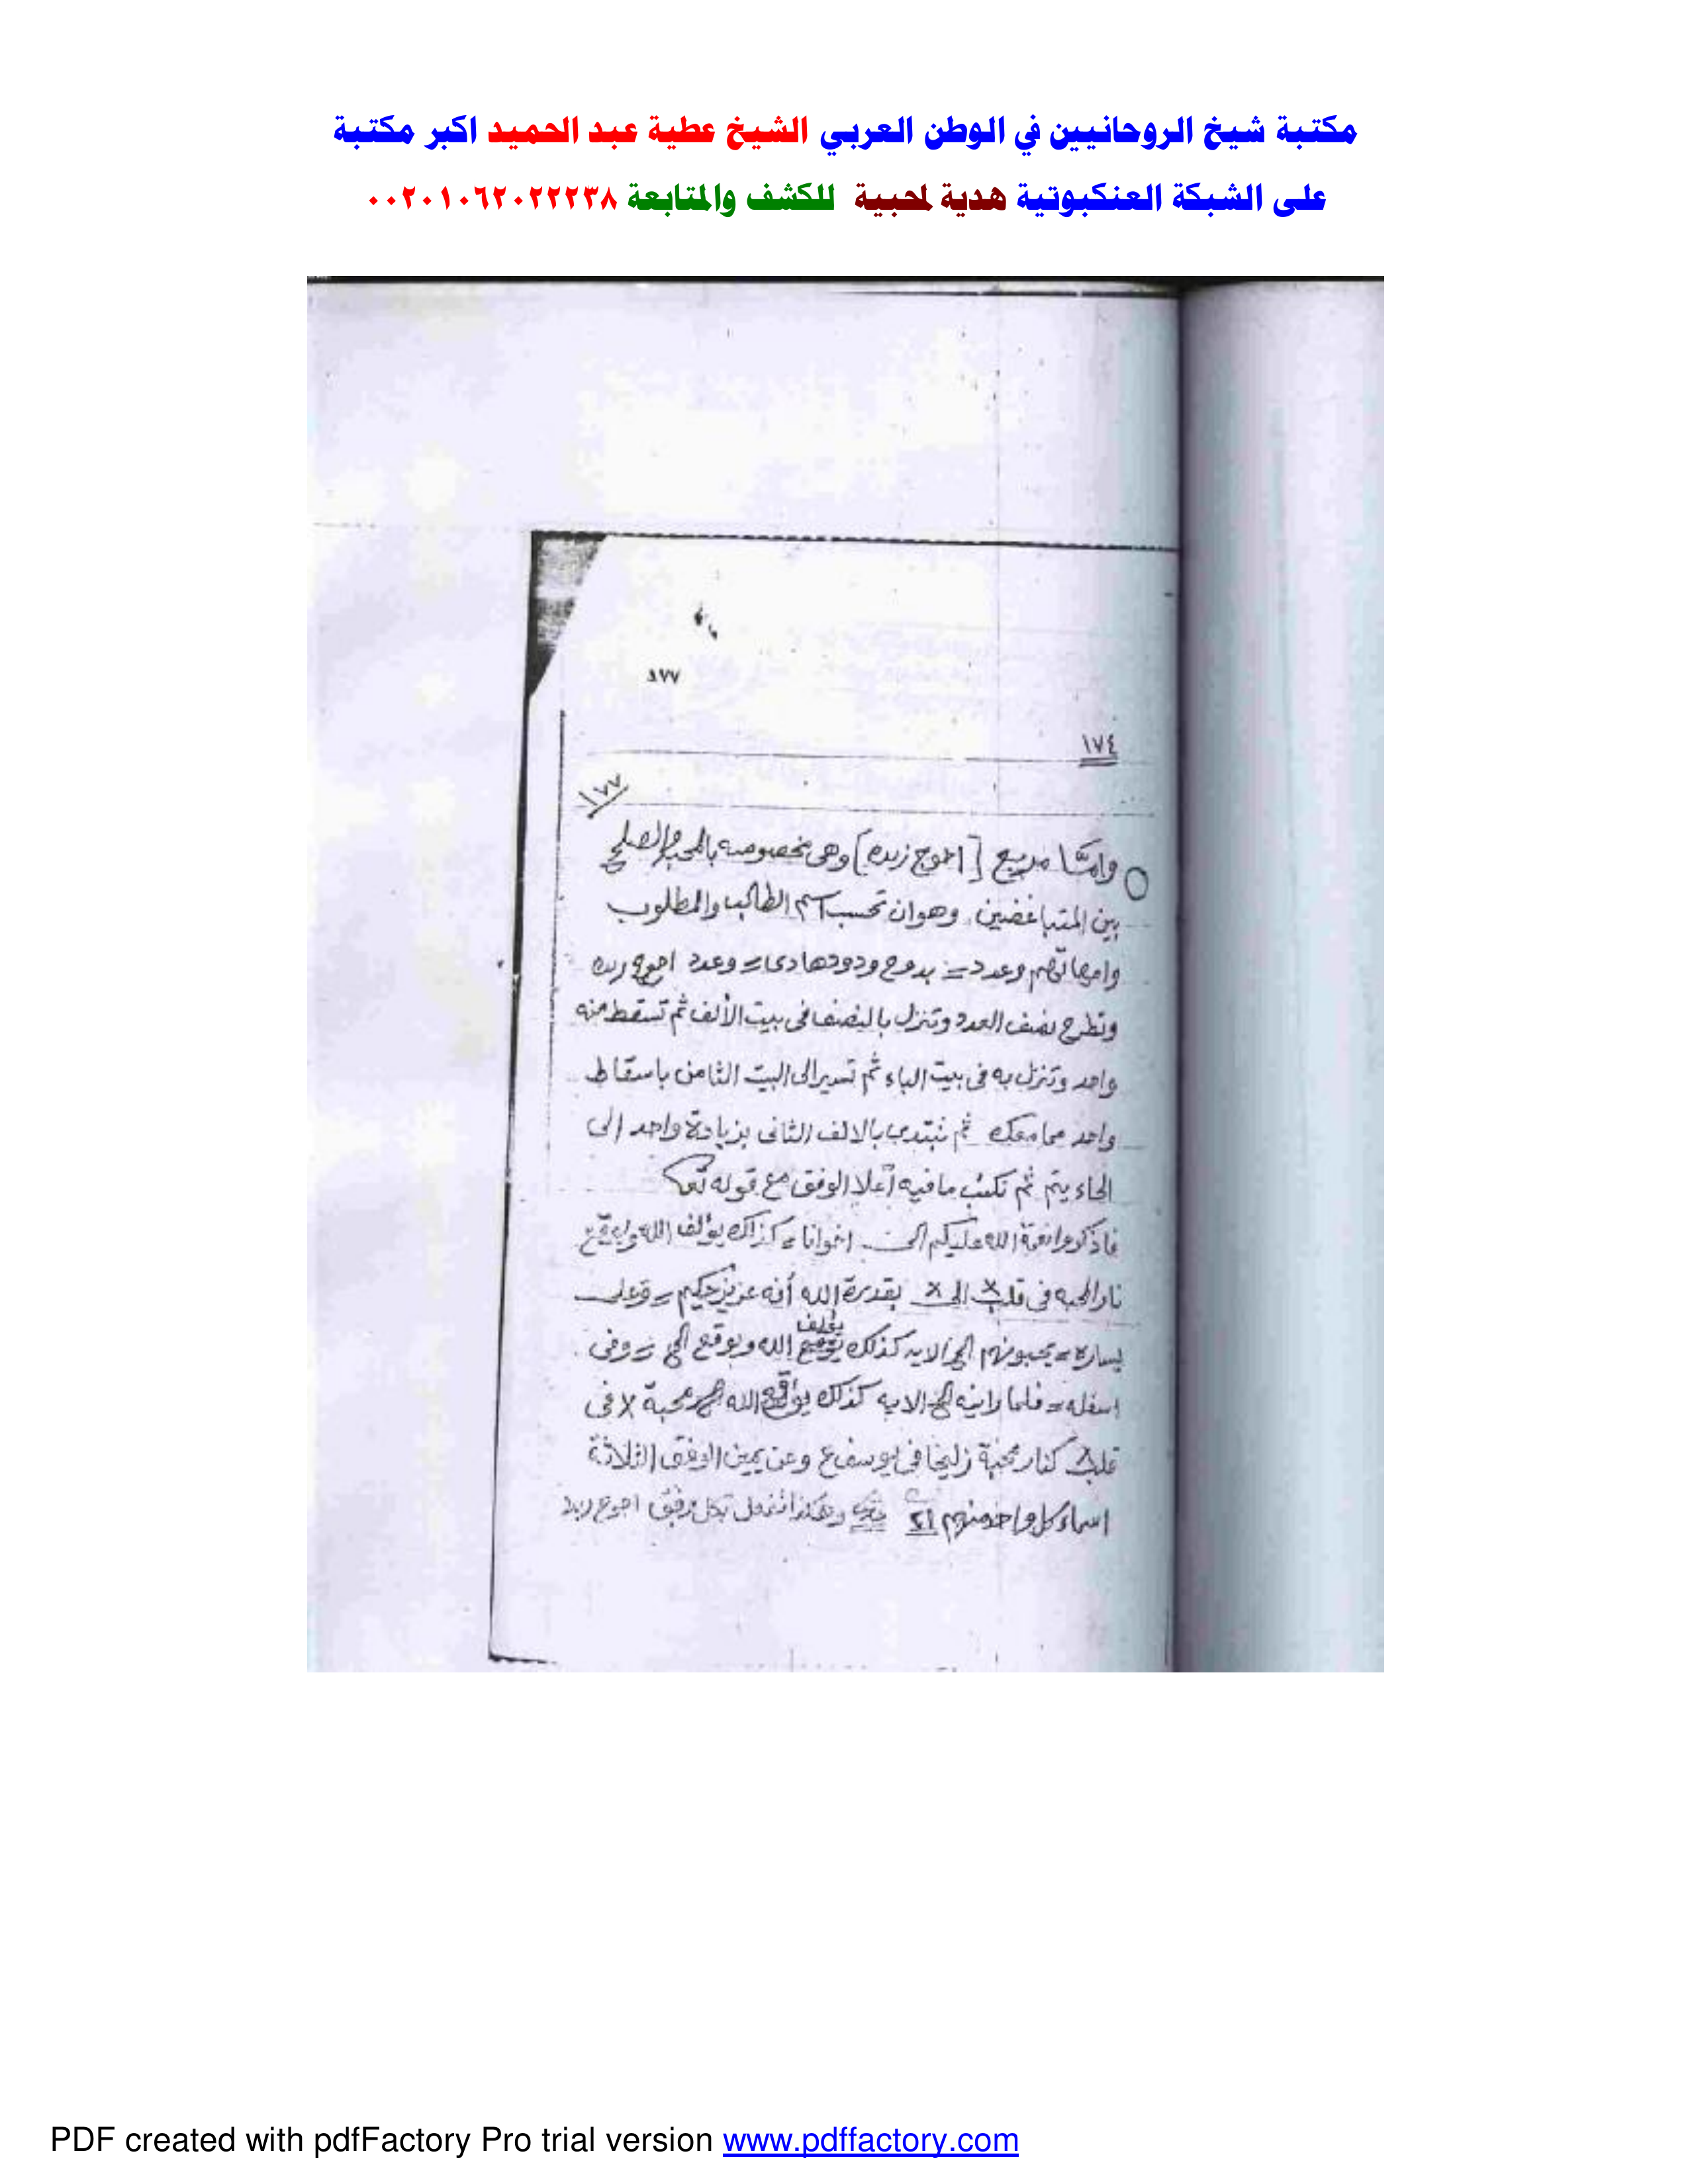 مكتبة شيخ الروحانيين في الوطن العربي الشيخ عطية عبد الحميد اكبر مكتبة
على الشبكة العنكبوتية هدية لمحبية للكشف والمتابعة ٠٠٢٠١٠٦٢٠٢٢٢٣٨
١٧٧
١٧٤
١٧٧
وامّا مربع [اجهوج زبده] وهى مخصوصه بالمحبه والصلح
بين المتباغضين وهو ان تحسب اسم الطالب والمطلوب
وامهاتهم وعدد = بدوح ودودها دى = وعدد
وتطرح نصف العدد وتنزل بالنصف فى بيت الألف ثم تسقط منه
واحد وتنزل به فى بيت الباء ثم تسير الى البيت الثامن باسقاط
واحد مما معك ثم نبتدى بالالف الثانى بزيادة واحد الى
الحاء يتم ثم تكتب ما فيه أعلا الوفق مع قوله تعا
فاذكروا نعمة الله عليكم الى اخوانا = كذلك يؤلف الله ويوقع
نار المحبه فى قلب x الى x بقدرة الله أنه عزيز حكيم = وعلى
يساره = يحبونهم الخ الايه كذلك يؤلف الله ويوقع الخ = وفى
اسفله = فلما راينه الخ الايه كذلك الله محبة x فى
قلب كنار محبة زليخا فى يوسف ع وعن يمين الوفق الثلاثة
اسماء كل واحد منهم ٢١ وهكذا تفعل بكل وفق
PDF created with pdfFactory Pro trial version www.pdffactory.com